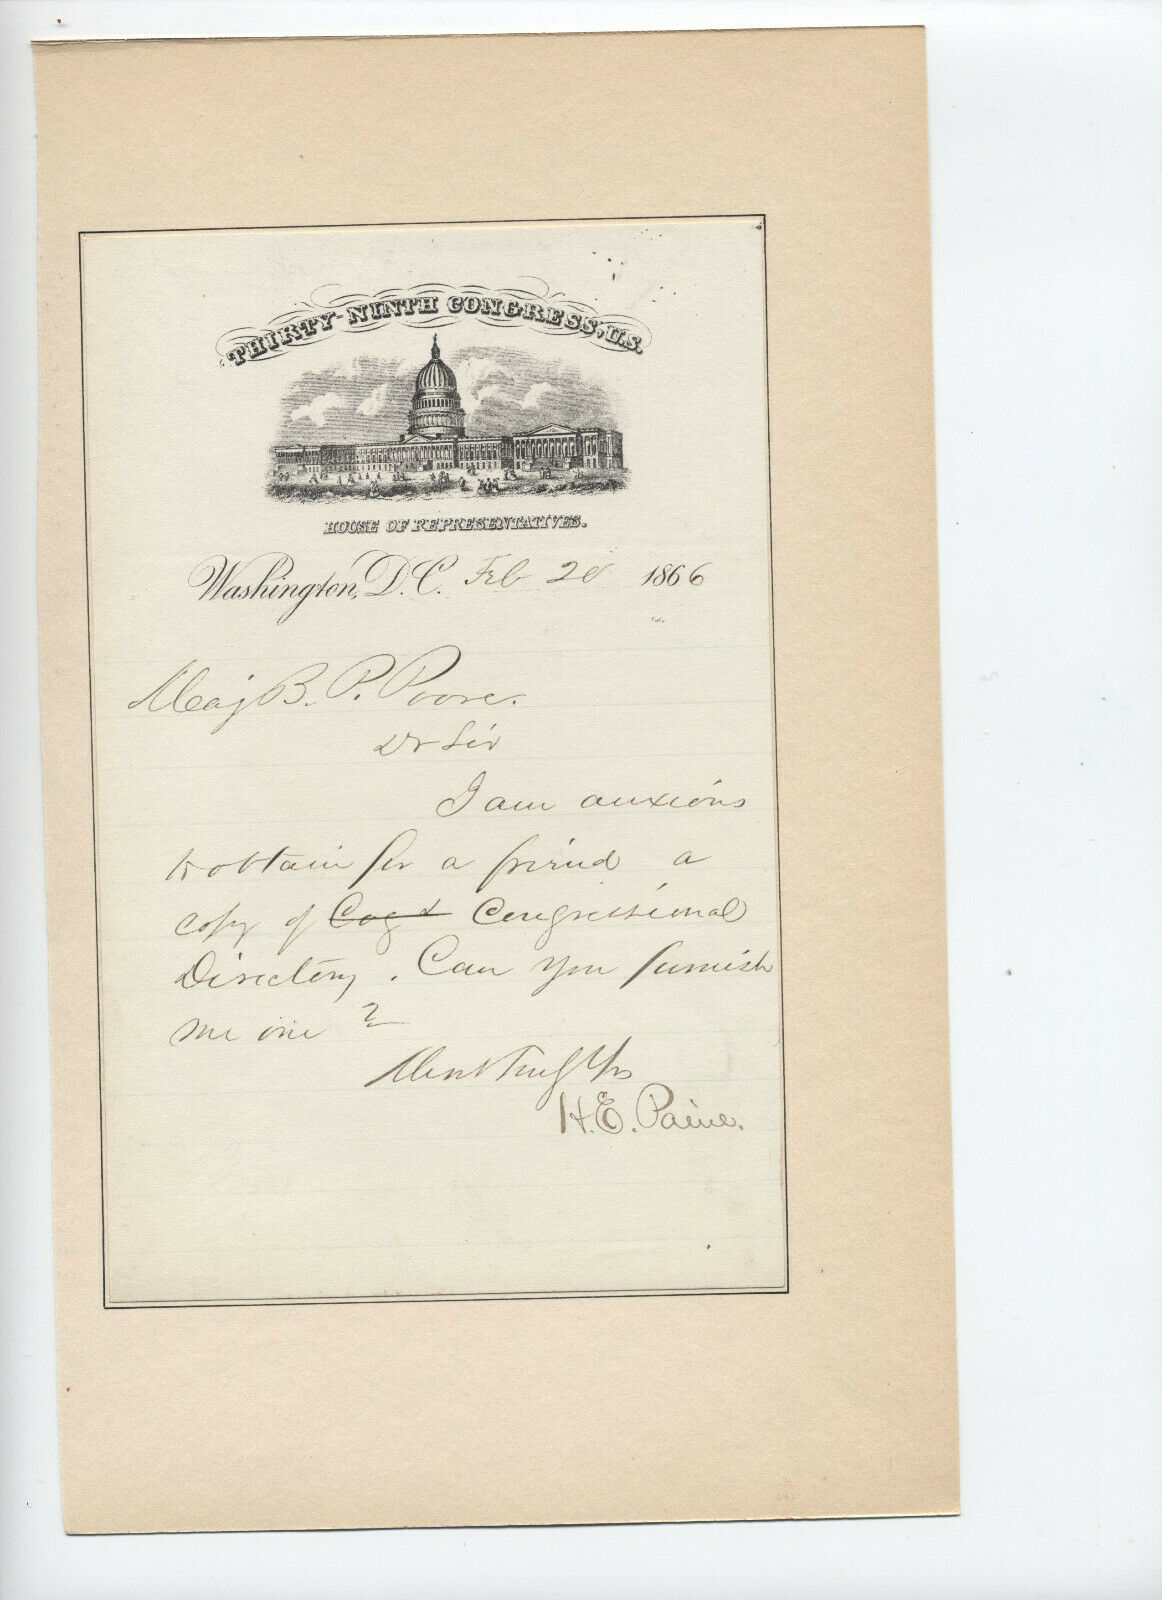 THIRTY-NINTH CONGRESS, U.S.
HOUSE OF REPRESENTATIVES.
Washington, D.C. Feb 20 1866
Maj B. P. Poore.
Dr Sir
I am anxious
to obtain for a friend a
copy of Cog d Congressional
Directory. Can you furnish
me one ?
Most Truly Yrs
H. E. Paine.